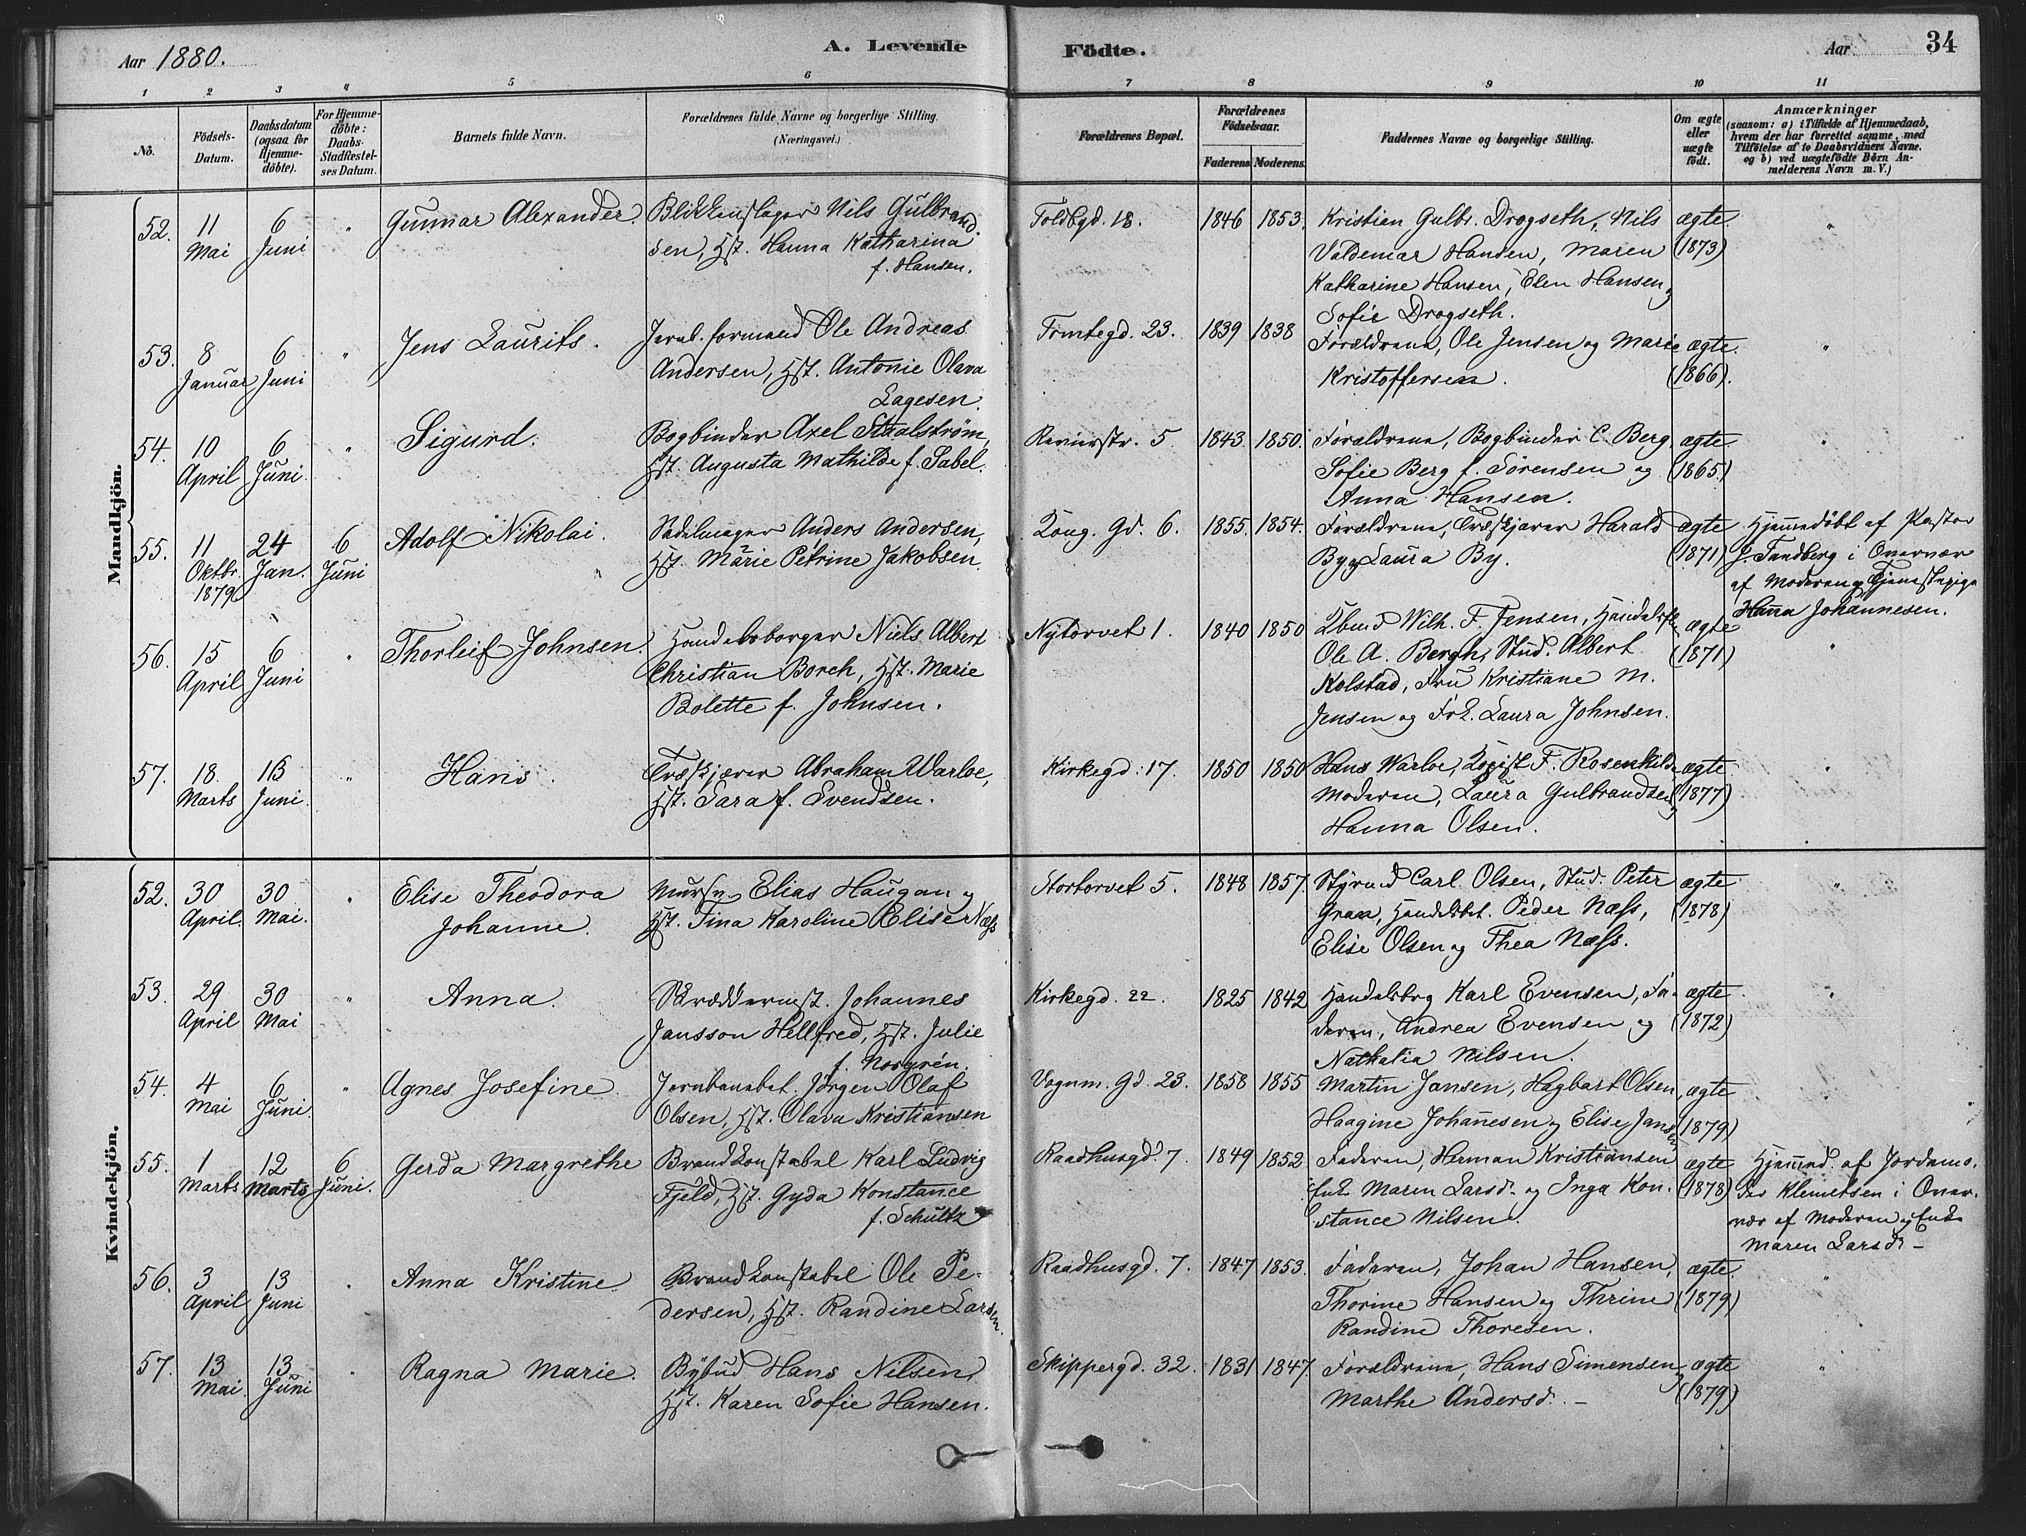 Aar 1880.
A. Levende
Födte.
Aar
34
1 2 3 4 5 6 7 8 9 10 11
No.
Födsels-Datum.
Daabsdatum (ogsaa for Hjemmedöbte).
For Hjemmedöbte: Daabs-Stadfæstelses Datum.
Barnets fulde Navn.
Forældrenes fulde Navne og borgerlige Stilling.
(Næringsvei.)
Forældrenes Bopæl.
Forældrenes Födselsaar.
Faderens. Moderens.
Faddernes Navne og borgerlige Stilling.
Om ægte eller uægte födt.
Anmærkninger
(saasom: a) i Tilfælde af Hjemmedaab, hvem der har forrettet samme, med Tilföielse af to Daabsvidners Navne. og b) ved uægtefödte Börn Anmelderens Navn m. V.)
Mandkjön.
52. 11 Mai 6 Juni " Gunnar Alexander Blikkenslager Nils Gulbrand
sen, Hst. Hanna Katharina
f. Hansen.
Toldbgd. 18. 1846 1853. Kristian Gulbr. Drogseth, Nils
Valdemar Hansen, Maren
Katharine Hansen, Elen Hansen,
Sofie Drogseth.
ægte (1873) "
53. 8 Januar 6 Juni " Jens Laurits. Jernb. formand Ole Andreas
Andersen, Hst. Antonie Olava
Lagesen.
Tomtegd. 23. 1839 1838 Forældrene, Ole Jensen og Marie
Kristoffersen.
ægte (1866). "
54. 10 April 6 Juni. " Sigurd. Bogbinder Axel Staalström,
Hst. Augusta Mathilde f. Sabel.
Revierstr. 5 1843. 1850. Forældrene, Bogbinder C. Berg
Sofie Berg f. Sörensen og
Anna Hansen.
ægte (1865) "
55. 11 Oktbr. 1879 24 Jan. 6 Juni Adolf Nikolai. Sadelmager Anders Andersen,
Hst. Marie Petrine Jakobsen.
Kong. Gd. 6. 1855. 1854. Forældrene, Træskjærer Harald
By og Laura By.
ægte (1871) Hjemmedöbt af Pastor
J. Tandberg i Overvær
af Moderen og Tjenestepige
Hanna Johannesen.
56. 15 April 6 Juni " Thorleif Johnsen. Handelsborger Niels Albert
Christian Borch, Hst. Marie
Bolette f. Johnsen.
Nytorvet 1. 1840 1850 Wilh. F. Jensen,
Ole A. Bergh, Stud. Albert
Kolstad, Fru Kristiane M.
Jensen og Frk. Laura Johnsen.
ægte (1871) "
57. 18 Marts 13 Juni. " Hans. Træskjærer Abraham Warloe,
Hst. Sara f. Svendsen.
Kirkegd. 17. 1850 1850 Hans Warloe, Kopist F. Rosenkilde
Moderen, Laura Gulbrandsen,
Hanna Olsen.
ægte (1877) "
Kvindekjön.
52. 30 April. 30 Mai. " Elise Theodora
Johanne.
Mursv. Elias Haugan og
Hst. Tina Karoline Elise Næss
Stortorvet 5. 1848 1857. Styrmd Carl Olsen, Stud. Peter
Gran, Handelsbet. Peder Næss,
Elise Olsen og Thea Næss.
ægte (1878) "
53. 29 April 30 Mai " Anna. Skræddermst. Johannes
Jansson Hellfred, Hst. Julie
f. Norgrén.
Kirkegd. 22. 1825 1842 Handelsbrg Karl Evensen, Fa-
deren, Andrea Evensen og
Nathalia Nilsen.
ægte (1872) "
54. 4 Mai 6 Juni. " Agnes Josefine. Jernbanebet. Jörgen Olaf
Olsen, Hst. Olava Kristiansen
Vognm. Gd. 23. 1858 1855 Martin Jansen, Hagbart Olsen,
Haagine Johannesen og Elise Jansen
ægte (1879)
55. 1 Marts 12 Marts 6 Juni. Gerda Margrethe Brandkonstabel Karl Ludvig
Fjeld, Hst. Gyda Konstance
f. Schultz
Raadhusgd. 7 1849 1852 Faderen, Herman Kristiansen
Enk. Maren Larsd. og Inga Kon-
stance Nilsen.
ægte (1878) Hjemmed. af Jordmo-
der Klemetsen i Over-
vær af Moderen og Enke
Maren Larsd. -
56. 3 April 13 Juni " Anna Kristine. Brandkonstabel Ole Pe-
dersen, Hst. Randine Larsen.
Raadhusgd. 7. 1847 1853. Faderen, Johan Hansen,
Thorine Hansen og Thrine
Randine Thoresen.
ægte. (1879) "
57. 13 Mai. 13 Juni " Ragna Marie. Bybud Hans Nilsen,
Hst. Karen Sofie Hansen.
Skippergd. 32. 1831 1847. Forældrene, Hans Simensen,
Marthe Andersd. -
ægte (1879) "